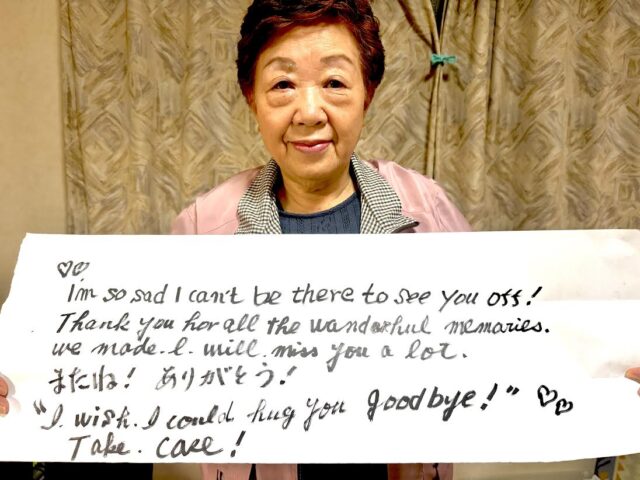 ♡♡
I'm so sad I can't be there to see you off!
Thank you hor all the wanderhul memories.
we made. I. will. miss you a lot.
またね! ありがとう!
"I. wish. I could hug you goodbye!" ♡♡
Take. Care!